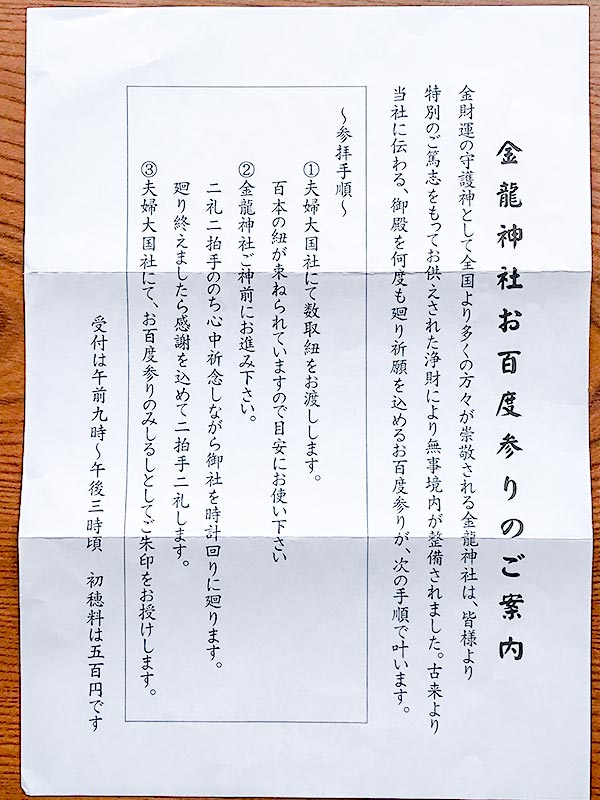 金龍神社お百度参りのご案内
金財運の守護神として全国より多くの方々が崇敬される金龍神社は、皆様より
特別のご篤志をもってお供えされた浄財により無事境内が整備されました。古来より
当社に伝わる、御殿を何度も廻り祈願を込めるお百度参りが、次の手順で叶います。
〜参拝手順〜
①夫婦大国社にて数取紐をお渡しします。
百本の紐が束ねられていますので目安にお使い下さい
②金龍神社ご神前にお進み下さい。
二礼二拍手ののち心中祈念しながら御社を時計回りに廻ります。
廻り終えましたら感謝を込めて二拍手二礼します。
③夫婦大国社にて、お百度参りのみしるしとしてご朱印をお授けします。
受付は午前九時〜午後三時頃　初穂料は五百円です